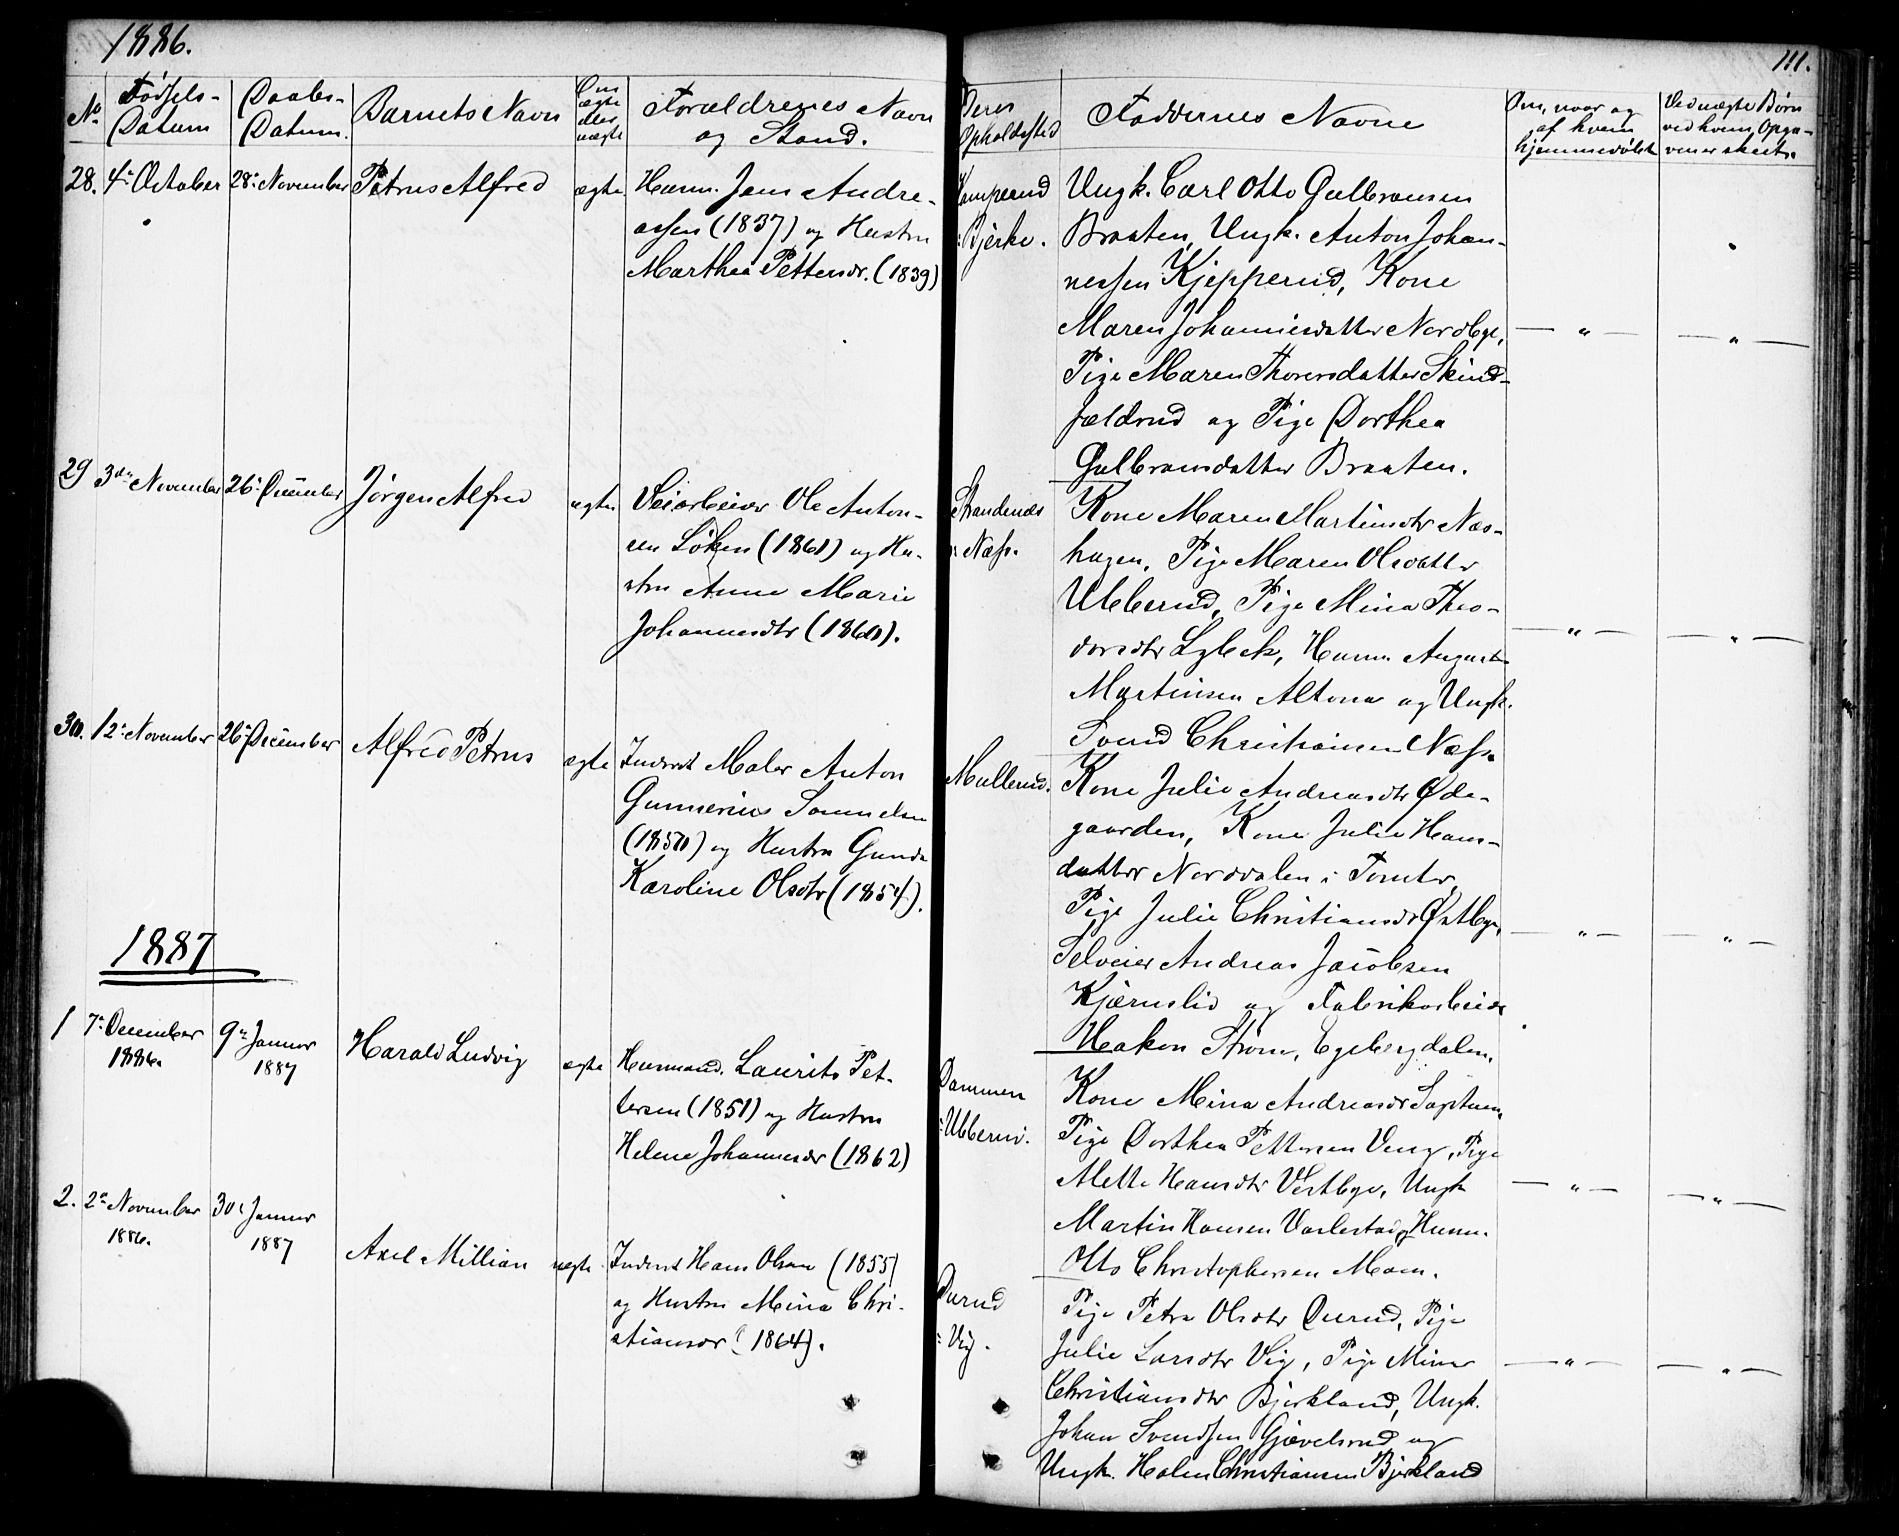 1886.
111.
No
Fødsels-
Datum
Daabs-
Datum.
Barnets Navn
Om
ægte
eller
uægte
Forældrenes Navn
og Stand.
Deres
Opholdssted
Faddernes Navne
Om, naar og
af hvem
hjemmedøbt
Ved uægte Børn
ved hvem, Opga-
ven er skeet.
28. 4de October 28de November Petrus Alfred ægte
Husm. Jens Andre-
assen (1837) og Hustru
Marthea Pettersdr. (1839)
Kamperud
i Bjerke.
Ungk. Carl Otto Gulbransen
Braaten, Ungk. Anton Johan-
nessen Kjepperud, Kone
Maren Johannesdatter Nordbye,
Pige Maren Thorersdatter Skind-
fældrud og Pige Dorthea
Gulbransdatter Braaten.
— " — — " —
29 3die November 26de December Jørgen Alfred ægte
Veiarbeider Ole Anton-
sen Løken (1861) og Hu-
stru Anne Marie
Johannesdtr (1860).
Strandenæs
i Næss.
Kone Maren Martinsdtr Næs-
hagen, Pige Maren Olsdatter
Ubberud, Pige Mina Theo-
dorsdtr Lybeck, Husm. August
Martinsen Altona og Ungk.
Svend Christiansen Næss.
— " — — " —
30. 12te November 26de December Alfred Petrus ægte
Inderst Maler Anton
Gunnerius Samuelsen
(1850) og Hustru Gunda
Karoline Olsdtr (1854).
Mullerud.
Kone Julie Andreasdtr Øde-
gaarden, Kone Julie Hans-
datter Nordvalen i Tomter,
Pige Julie Christiansdr Østbye,
Selveier Andreas Jacobsen
Kjærnslid og Fabrikarbeider
Haakon Strøm, Egebergdalen.
— " — — " —
1887
1 7de December
1886.
9de Januar
1887
Harald Ludvig ægte
Husmand. Laurits Pet-
tersen (1851) og Hustru
Helene Johannesdr (1862)
Dammen
i Ubberud.
Kone Mina Andreasdr
Pige Dorthea Pettersen Veng, Pige
Mette Hansdtr Vestbye, Ungk
Martin Hansen Varlestad og Husm.
Otto Christophersen Moen.
— " — — " —
2. 2den November
1886.
30te Januar
1887
Axel Millian ægte
Inderst Hans Olsen (1855)
og Hustru Mina Chri-
stiansdr (1864).
Durud
i Vig.
Pige Petra Olsdtr Durud, Pige
Julie Larsdtr Vig, Pige Mina
Christiansdtr Bjerkland, Ungk.
Johan Svendsen Gjævelsrud og
Ungk. Halen Christiansen Bjerkland
— " — — " —